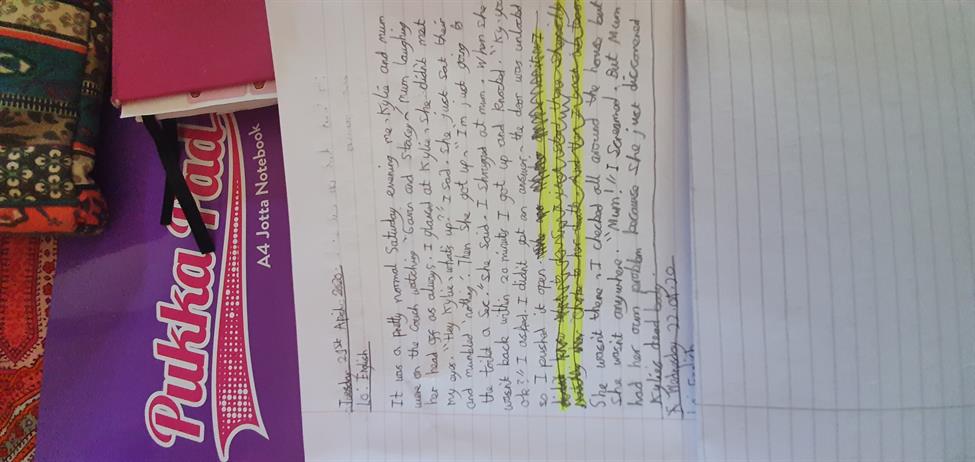 Pukka Pad
A4 Jotta Notebook
Tuesday 21st April 2020
Lo: English
It was a pretty normal Saturday evening me, Kylie and mum
were on the couch watching "Gavin and Stacey" mum laughing
her head off as always. I glared at Kylie, she didn't meet
my eyes. "Hey Kylie, whats up?" I said. She just sat their
and mumbled "nothing". Then she got up. "I'm just going to
the toilet a sec" she said. I shrugged at mum. When she
wasn't back within 20 minutes I got up and knocked. "Ky, you
ok?" I asked. I didn't get an answer, the door was unlocked
so I pushed it open
She wasn't there. I checked all around the house but
she wasn't anywhere. "Mum!" I screamed. But Mum
had her own problem because she just discovered
Kylies dead body.
Wednesday 22.04.20
English